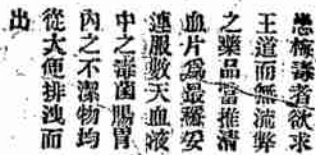 患梅毒者欲求
王道而無流弊
之藥品當推清
血片爲最穩妥
連服數天血液
中之毒菌腸胃
內之不潔物均
從大便排洩而
出